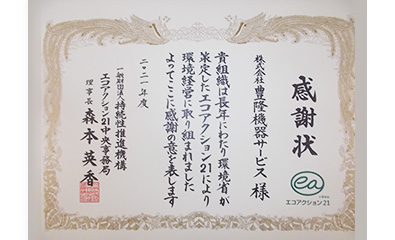 感謝状
株式会社 豊隆機器サービス 様
貴組織は長年にわたり環境省が
策定したエコアクション21により
環境経営に取り組まれました
よってここに感謝の意を表します
二〇二一年度
一般財団法人 持続性推進機構
エコアクション21中央事務局
理事長 森本英香
ea
エコアクション21